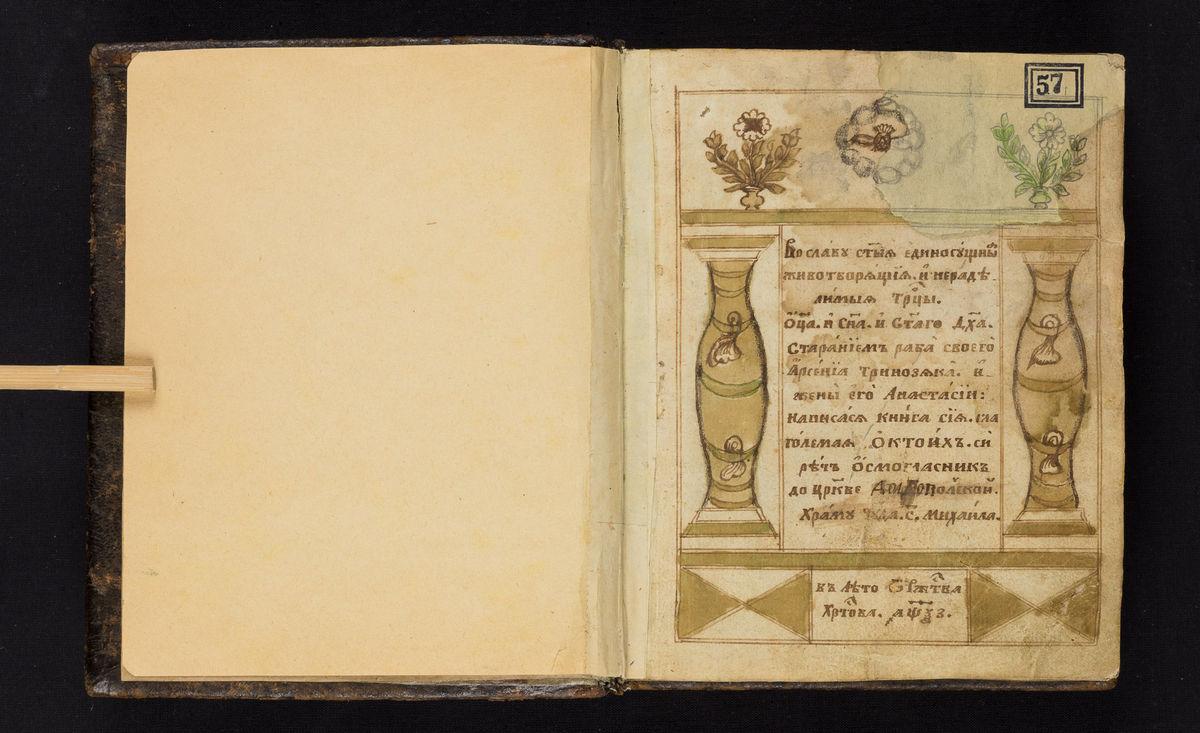 57
Во славу ст҃ыѧ единосꙋщны
животворѧщїѧ. и нераздѣ
лимыѧ Трⷪ҇цы.
Ѻц҃а. и Сн҃а. и Ст҃аго Дх҃а.
Старанїемъ раба своегѡ
Арсенїѧ и
жены егѡ Анастасїи:
написасѧ книга сїѧ. гла
големаѧ ОКТОИХЪ. си
рѣчъ ѻсмогласникъ
до црк҃ве
Храмꙋ С. Михаила.
въ лѣто Ѿ Ржⷭ҇тва
Хрⷭ҇това. аѱѯз.